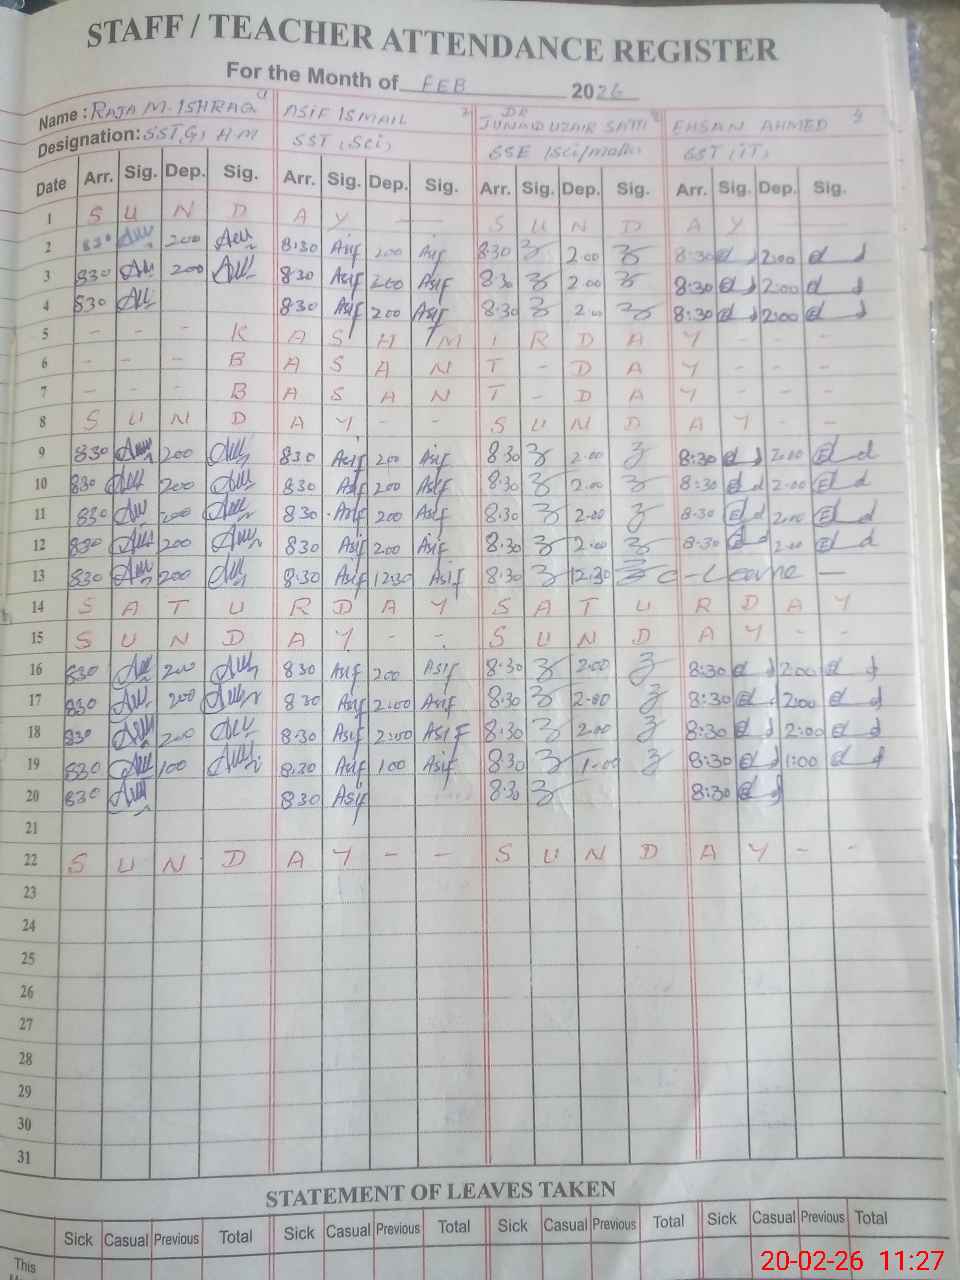 STAFF / TEACHER ATTENDANCE REGISTER
For the Month of FEB 2026
Name : RAJA M. ISHRAQ ASIF ISMAIL DR JUNAID UZAIR SATTI EHSAN AHMED
Designation: SST,G, AM SST (Sci) SSE (Sci/math) SST (IT)
Date Arr. Sig. Dep. Sig. Arr. Sig. Dep. Sig. Arr. Sig. Dep. Sig. Arr. Sig. Dep. Sig.
1 S U N D A Y - - S U N D A Y
2 830 200 8:30 Asif 200 Asif 8:30 2.00 8:30 2:00
3 830 200 8:30 Asif 200 Asif 8:30 2.00 8:30 2:00
4 830 8:30 Asif 200 Asif 8:30 2.00 8:30 2:00
5 - - - K A S H M I R D A Y - - -
6 - - - B A S A N T - D A Y - - -
7 - - - B A S A N T - D A Y - - -
8 S U N D A Y - - S U N D A Y - -
9 830 200 830 Asif 200 Asif 8:30 2.00 8:30 2:00
10 830 200 830 Asif 200 Asif 8:30 2.00 8:30 2:00
11 830 200 830 Asif 200 Asif 8:30 2.00 8:30 2:00
12 830 200 830 Asif 200 Asif 8:30 2.00 8:30 2:00
13 830 200 8:30 Asif 12:30 Asif 8:30 12.30 C-Leave -
14 S A T U R D A Y S A T U R D A Y
15 S U N D A Y - - S U N D A Y - -
16 830 200 830 Asif 200 Asif 8:30 2.00 8:30 2:00
17 830 200 830 Asif 2:00 Asif 8:30 2.00 8:30 2:00
18 830 200 8:30 Asif 2:00 ASIF 8:30 2.00 8:30 2:00
19 830 100 8:30 Asif 100 Asif 8:30 1.00 8:30 1:00
20 830 830 Asif 8:30 8:30
21
22 S U N D A Y - - S U N D A Y - -
23
24
25
26
27
28
29
30
31
STATEMENT OF LEAVES TAKEN
Sick Casual Previous Total Sick Casual Previous Total Sick Casual Previous Total Sick Casual Previous Total
This
20-02-26 11:27